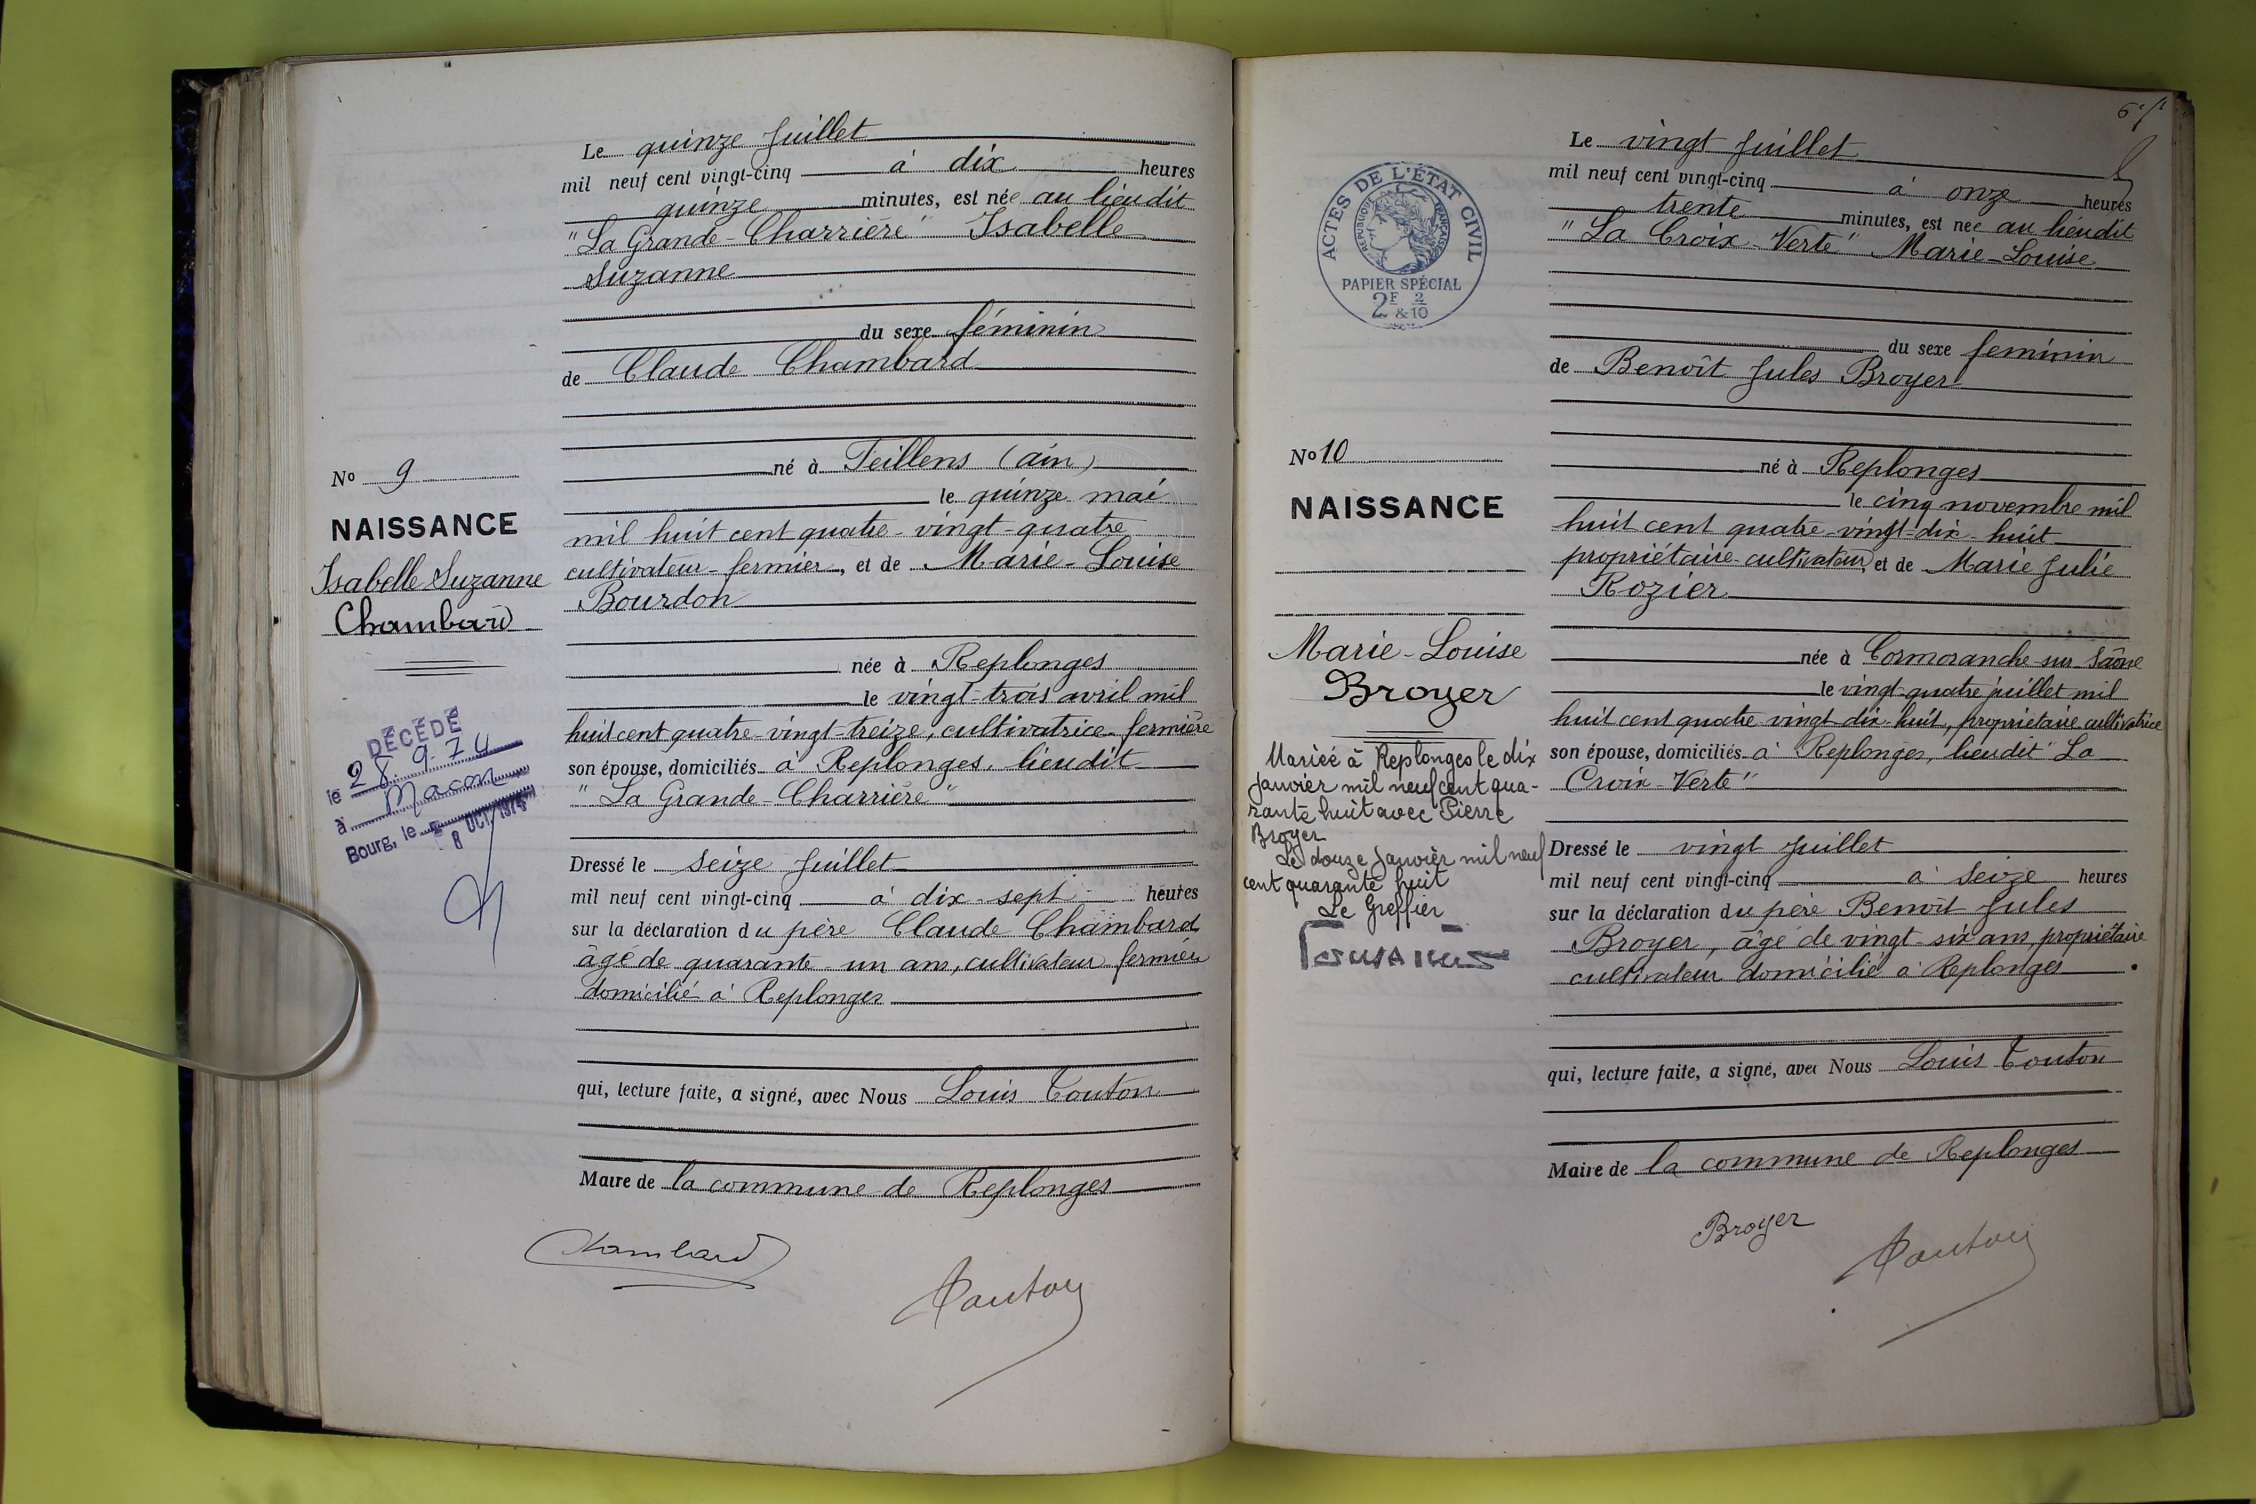 Le quinze Juillet
mil neuf cent vingt-cinq à dix heures
quinze minutes, est née au lieudit
"La Grande-Charrière" Isabelle
Suzanne
du sexe féminin
de Claude Chambard
né à Feillens (ain)
le quinze mai
mil huit cent quatre-vingt-quatre
cultivateur-fermier, et de Marie-Louise
Bourdon
née à Replonges
le vingt-trois avril mil
huit cent quatre-vingt-treize, cultivatrice-fermière
son épouse, domiciliés à Replonges, lieudit
"La Grande-Charrière"
Dressé le seize Juillet
mil neuf cent vingt-cinq à dix-sept heures
sur la déclaration du père Claude Chambard
âgé de quarante-un ans, cultivateur fermier
domicilié à Replonges
qui, lecture faite, a signé, avec Nous Louis Touton
Maire de la commune de Replonges
Chambard
Touton
No 9
NAISSANCE
Isabelle Suzanne
Chambard
DÉCÉDÉ
le 28.9.74
à Macon
Bourg, le 8 OCT 1974
6
ACTES DE L'ÉTAT CIVIL
RÉPUBLIQUE FRANÇAISE
PAPIER SPÉCIAL
2F & 2/10
Le vingt Juillet
mil neuf cent vingt-cinq à onze heures
trente minutes, est née au lieudit
"La Croix-Verte" Marie-Louise
du sexe feminin
de Benoît Jules Broyer
né à Replonges
le cinq novembre mil
huit cent quatre-vingt-dix-huit
propriétaire-cultivateur, et de Marie Julie
Rozier
née à Cormoranche-sur-Saône
le vingt-quatre juillet mil
huit cent quatre vingt dix-huit, propriétaire cultivatrice
son épouse, domiciliés à Replonges, lieudit "La
Croix-Verte"
Dressé le vingt Juillet
mil neuf cent vingt-cinq à seize heures
sur la déclaration du père Benoît Jules
Broyer, âgé de vingt six ans, propriétaire
cultivateur domicilié à Replonges
qui, lecture faite, a signé, avec Nous Louis Touton
Maire de la commune de Replonges
Broyer
Touton
No 10
NAISSANCE
Marie-Louise
Broyer
Mariée à Replonges le dix
Janvier mil neuf cent qua-
rante huit avec Pierre
Broyer
Le douze Janvier mil neuf
cent quarante huit
Le Greffier